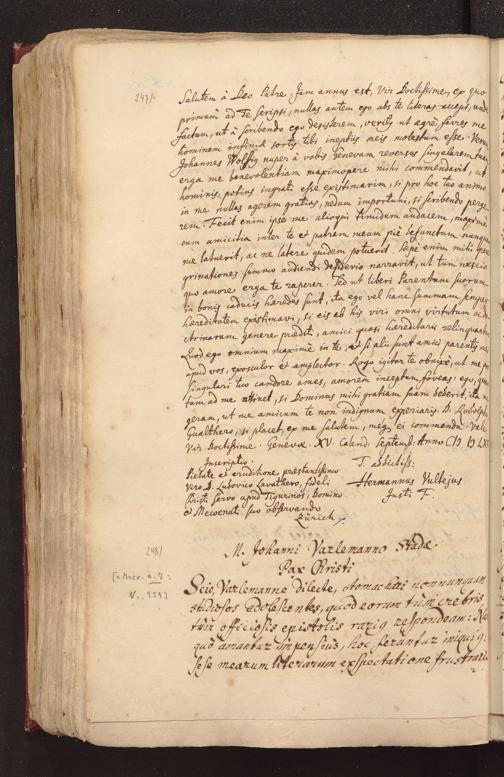 247/
Salutem à Deo Patre. Jam annus est, Vir Doctissime, ex quo
primum ad Te scripsi, nullas autem ego abs te literas accepi, unde
factum, ut à scribendo ego desisterem, veritus ut ægrè ferres me
hominem infimæ sortis tibi ineptiis meis molestum esse. Verum
Johannes Wolffig nuper à vobis Genevam reversus singularem tuam
erga me benevolentiam maximopere mihi commendavit, ut
hominis potius ingrati esse existimarim, si pro hoc tuo animo
in me nullas agerem gratias, nedum importuni, si scribendo perge
rem. Fecit enim ipse me alioqui timidum audacem, maxime
cum amicitia inter te et patrem meum piè defunctum nunquam
me latuerit, ac ne latere quidem potuerit. Sepe enim mihi pere
grinationes summo audiendi desiderio narravit, ut tum nescio
quo amore erga te raperer. Sed ut liberi Parentum suorum
in bonis caducis heredes sunt, ita ego vel hanc summam semper
hereditatem existimavi, si eis ab his viri omni virtutum ac do
ctrinarum genere præditi, amici quasi hereditarii relinquantur
Quod ego omnium maximè in te, et si alii sunt amici parentis mei
apud vos, exosculor et amplector. Rogo igitur te obnixè, ut me pro
singulari tuo candore ames, amorem inceptum foveas: ego, quan
tum ad me attinet, si Dominus mihi gratiam suam dederit, ita me
geram, ut me amicum te non indignum experiaris. D. Rodolpho
Gualthero, si placet, ex me salutem, meq; ei commenda. Vale
Vir Doctissime. Genevæ. XV. Calend. Septemb. Anno CIƆ IƆ LX
Inscriptio.
Pietate et eruditione præstantissimo
viro D. Ludovico Lavathero, fideli
Christi servo apud Tigurinos, Domino
& Mecœnati suo observando
Zürich.
T. addictiss:
Hermannus Vultejus
Justi F.
248/
M. Johanni Varlemanno Stadæ.
Pax Christi
Scis, Varlemanne dilecte, stomachari nonnunquam
studiosos Adolescentes, quod eorum tum crebris
tum officiosis epistolis rarius respondeam:
quo amantur impensius, hoc ferantur iniquiq;
sese mearum literarum exspectatione frustrari